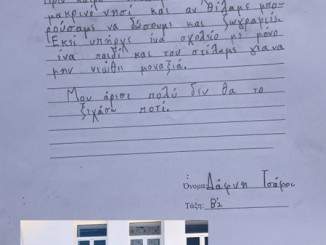 μακρινό νησί και αν θέλαμε μπο-
ρούσαμε να δώσουμε και ζωγραφιές.
Εκεί υπήρχε ένα σχολείο με μόνο
ένα παιδί και του στείλαμε για να
μην νιώθει μοναξιά.
Μου άρεσε πολύ δεν θα το
ξεχάσω ποτέ.
Όνομα: Δάφνη Τσάρου
Τάξη: Β'2